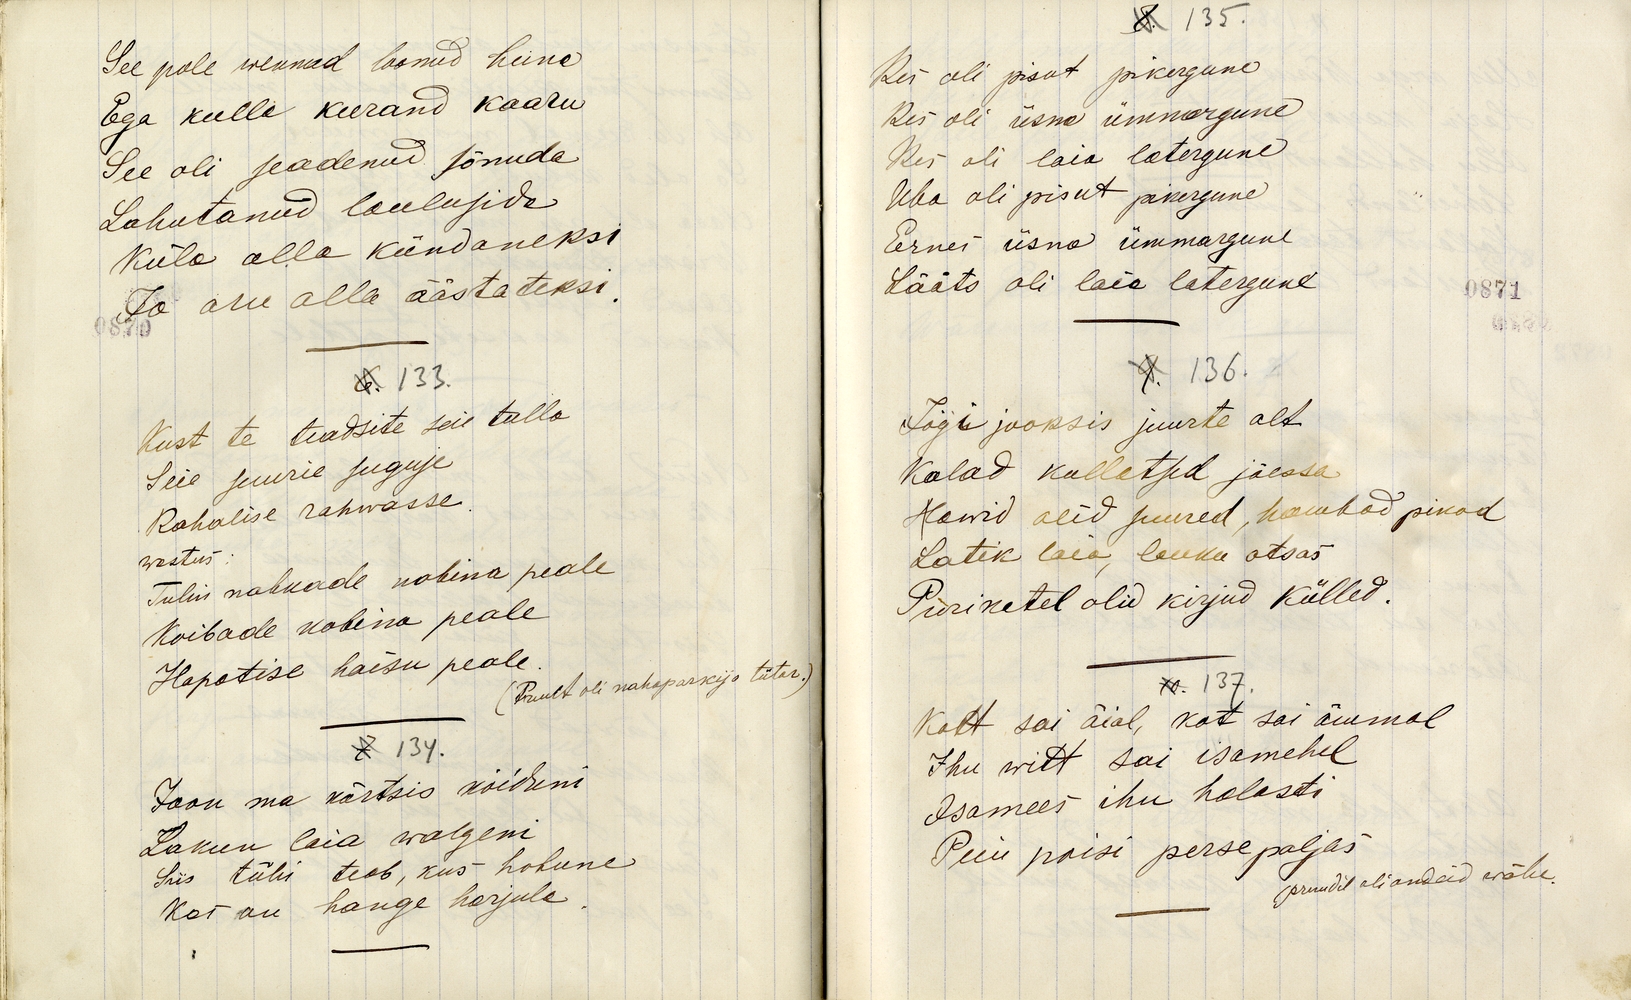 See pole wennad loonud heina
Ega kulla keerand kaaru
See oli seadenud sõnuda
Lahutanud laulusida
Küla alla kündaneksi
Ja aru alla äästateksi.
0870
6. 133.
Kust te teadsite seie tulla
Seie suurie suguje
Rahalise rahwasse.
wastus:
Tulin nahkade nobina peale
Koibade kobina peale
Hapatise haisu peale.
(Pruut oli nahaparkija tütar.)
7 134.
Joon ma kõrtsis köidzeni
Lakun laia walgeni
Siis tühi teab, kus hobune
Kas on hange harjula.
8. 135.
Kes oli pisut pikergune
Kes oli üsna ümmargune
Kes oli laia latergune
Uba oli pisut pikergune
Ernes üsna ümmargune
Lääts oli laia latergune
0871
9. 136.
Jõgi jooksis juurte alt
Kalad kullatsed jõessa
Hawid olid suured, hambad pikad
Latik laia, lauku otsas
Purikatel olid kirjud külled.
10. 137.
Kott sai äial, kot sai ämmal
Ihu witt sai isamehel
Isamees ihu halasti
Peiu poisi perse paljas
pruudil oli andeid wähe.